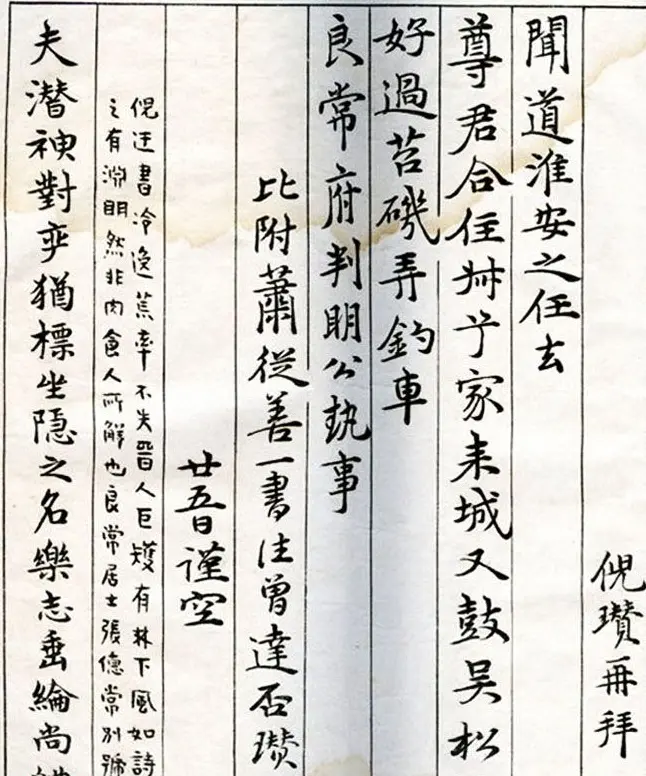 倪瓚再拜
聞道淮安之任玄
尊君合住家耒城又鼓吴松
好過苕磯弄釣車
良常府判明公執事
比附蕭從善一書往曾達否瓚
廿五日謹空
倪迂書冷逸蕉率不失晉人巨矱有林下風如詩
之有淵明然非肉食人所解也良常居士張德常別號
夫潛神對弈猶標坐隱之名樂志垂綸尚